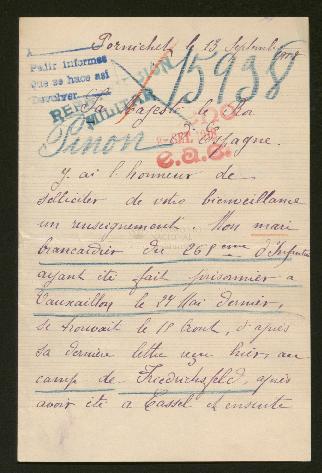 Pornichet, le 13 Septembre 1918
A
Pedir informes
Que se hace así
Devolver
REPATRIACION
MILITAR
15938
Sa Majesté le Roi
Pinon
d'Espagne.
e.a.c.
J'ai l'honneur de
solliciter de votre bienveillance
un renseignement. Mon mari
brancardier du 268ème d'Infanterie
ayant été fait prisonnier à
Vauxaillon le 27 Mai dernier,
se trouvait le 18 Août, d'après
sa dernière lettre reçue hier, au
camp de Friedrichsfeld, après
avoir été à Cassel et ensuite